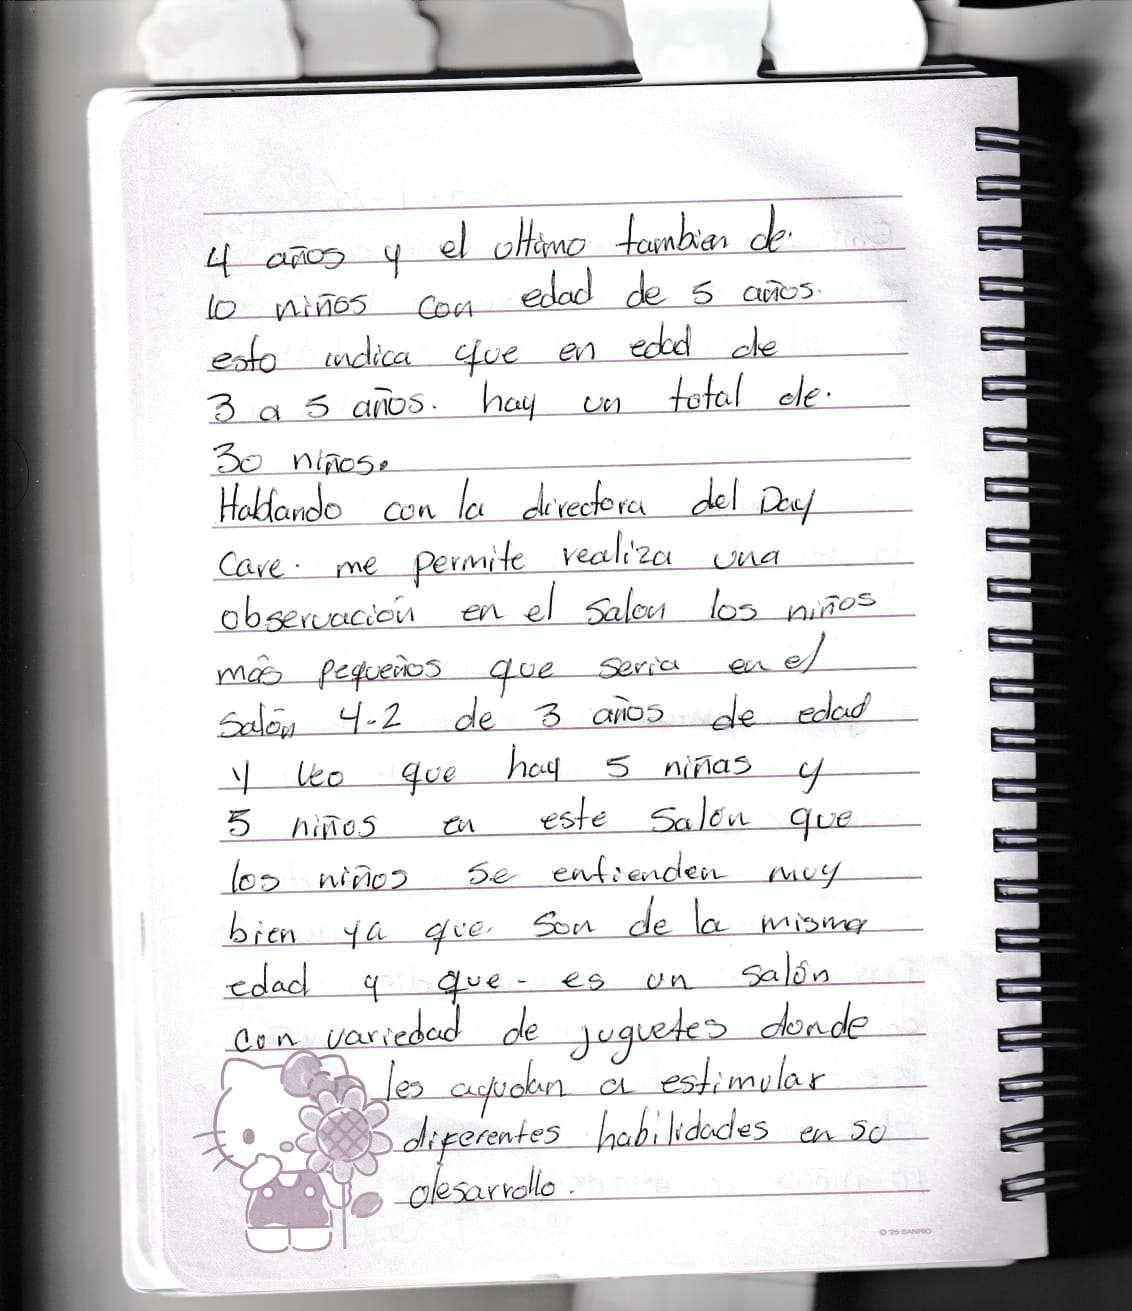 4 años y el ultimo tambien de.
10 niños con edad de 5 años.
esto indica que en edad de
3 a 5 años. hay un total de.
30 niños.
Hablando con la directora del Day
Care. me permite realiza una
observación en el salon los niños
más pequeños que seria en el
salón 4-2 de 3 años de edad
y veo que hay 5 niñas y
5 niños en este salón que
los niños se entienden muy
bien ya que. son de la misma
edad y que - es un salón
con variedad de juguetes donde
les ayudan a estimular
diferentes habilidades en su
desarrollo.
© '25 SANRIO